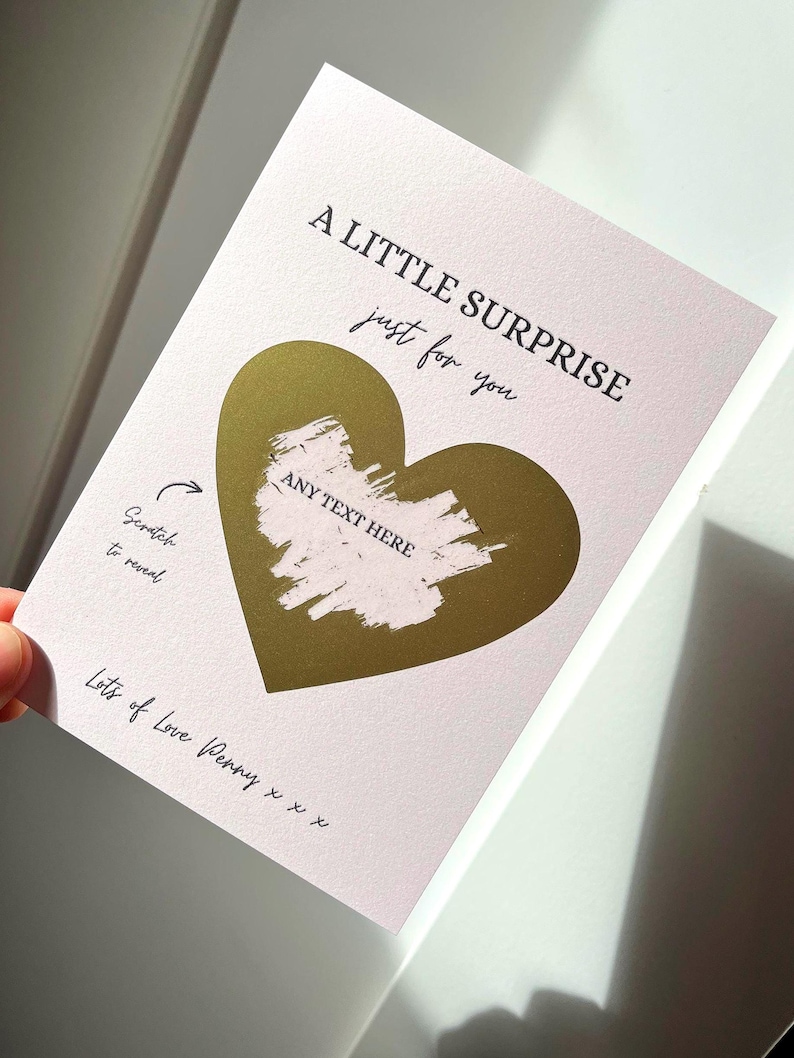 A LITTLE SURPRISE
just for you
ANY TEXT HERE
Scratch
to reveal
Lots of Love Penny x x x